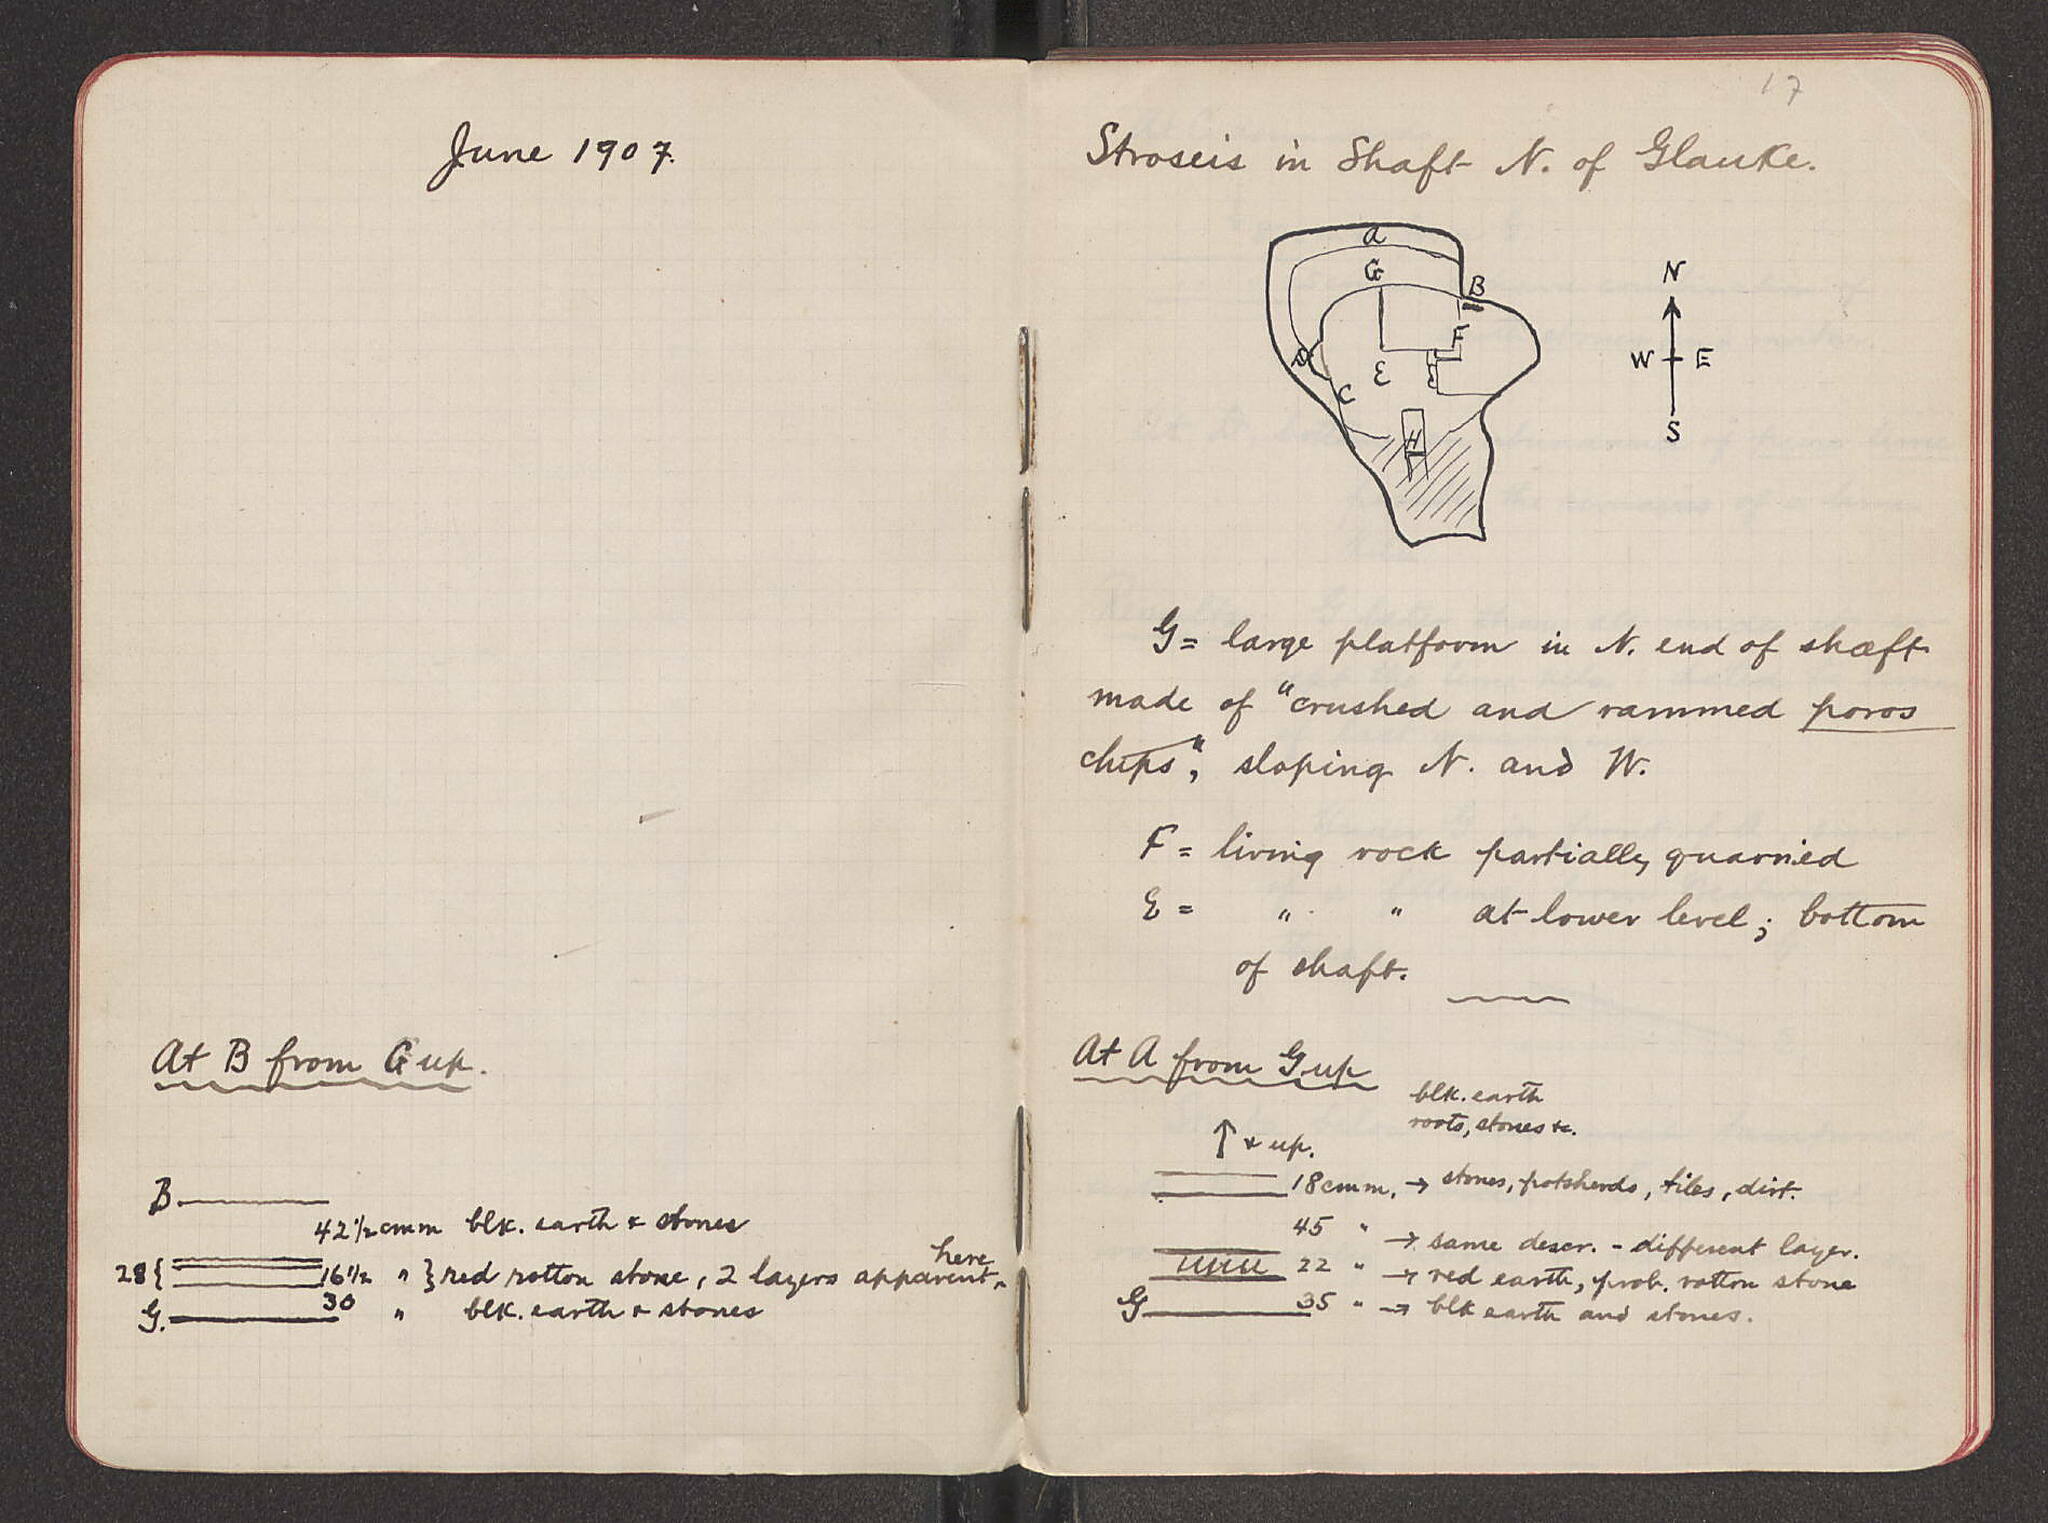 June 1907.
At B from G up.
B.
42 1/2 cmm blk. earth & stones
here
28 { 16 1/2 " } red rotton stone, 2 layers apparent ^
G. 30 " blk. earth & stones
17
Stroseis in Shaft N. of Glauke.
A
G
B
F
D
E
C
H
N
W E
S
G = large platform in N. end of shaft
made of "crushed and rammed poros
chips", sloping N. and W.
F = living rock partially quarried
E = " " at lower level; bottom
of shaft.
At A from G up
blk. earth
roots, stones &c.
↑ & up.
18 cmm. → stones, potsherds, tiles, dirt.
45 " → same descr. - different layer.
22 " → red earth, prob. rotton stone
G 35 " → blk earth and stones.